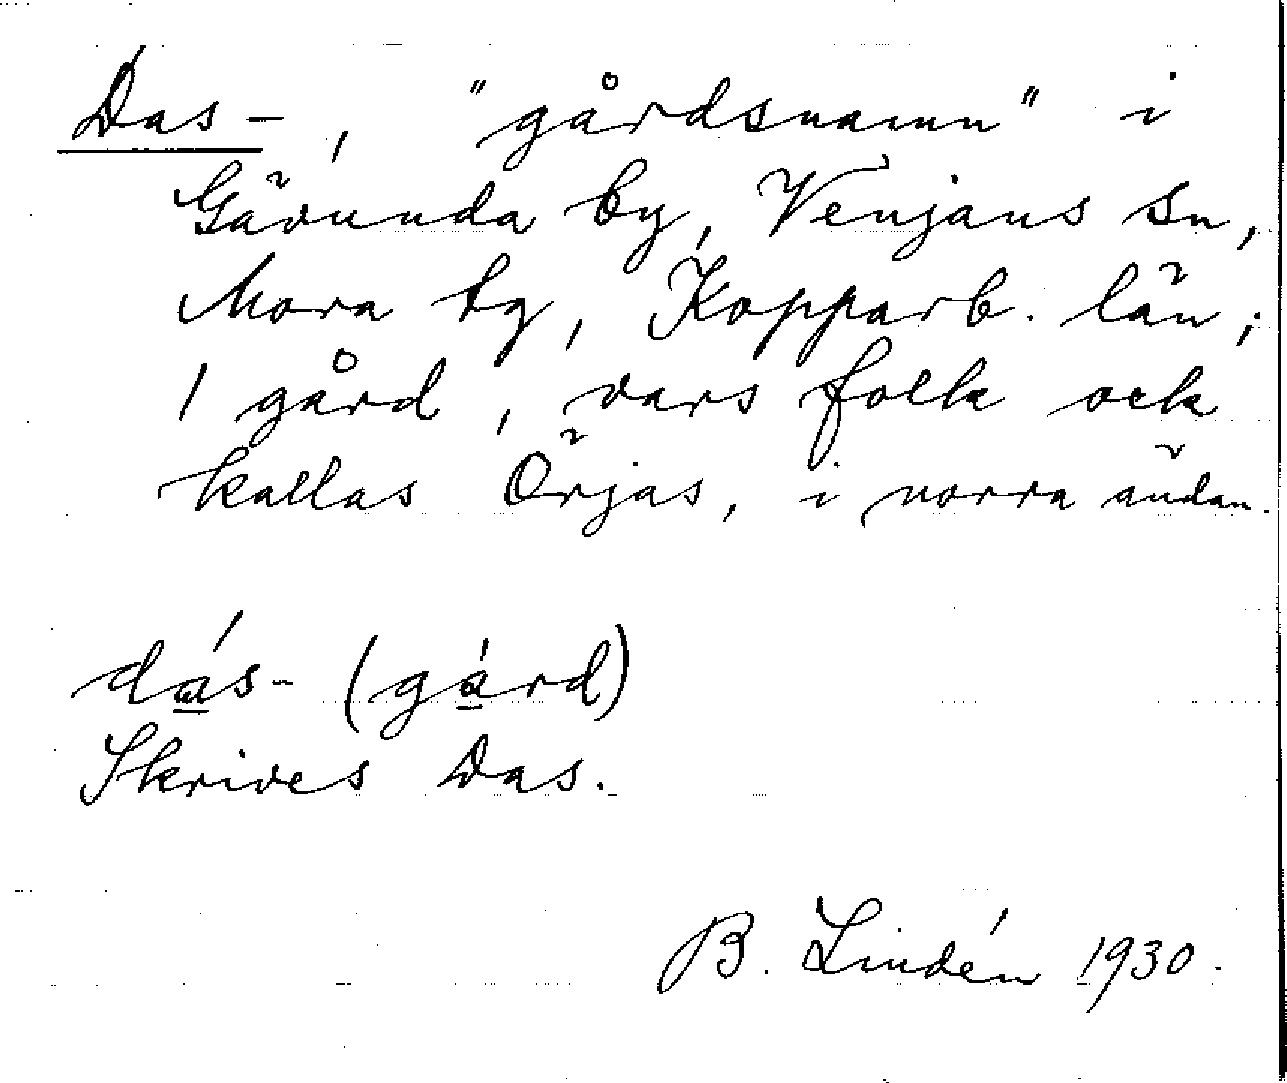 Das-, "gårdsnamn" i
Gävunda by, Venjans sn,
Mora tg, Kopparb. län;
1 gård, vars folk ock
kallas Örjas, i norra ändan.
dás- (gárd)
Skrives Das.
B. Lindén 1930.